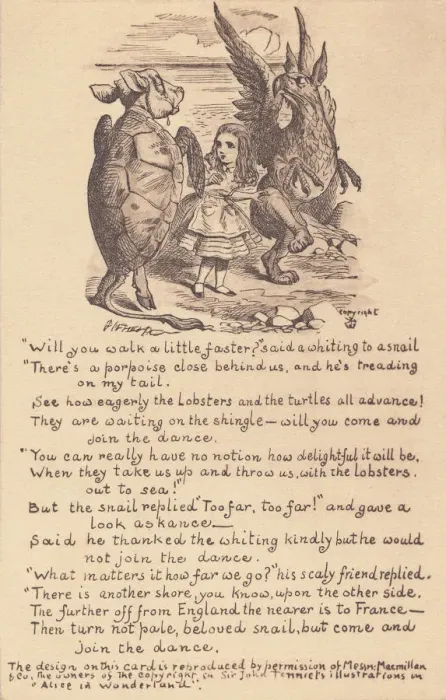 copyright
"Will you walk a little faster?" said a whiting to a snail
"There's a porpoise close behind us, and he's treading
on my tail.
See how eagerly the Lobsters and the turtles all advance!
They are waiting on the shingle — will you come and
join the dance.
"You can really have no notion how delightful it will be.
When they take us up and throw us, with the Lobsters.
out to sea!"
But the snail replied "Too far, too far!" and gave a
look askance —
Said he thanked the whiting kindly but he would
not join the dance.
"What matters it how far we go?" his scaly friend replied.
"There is another shore, you know, upon the other side.
The further off from England the nearer is to France —
Then turn not pale, beloved snail, but come and
join the dance.
The design on this card is reproduced by permission of Messrs: Macmillan
& Co, the owners of the copyright, in Sir John Tenniel's illustrations in
"Alice in Wonderland".